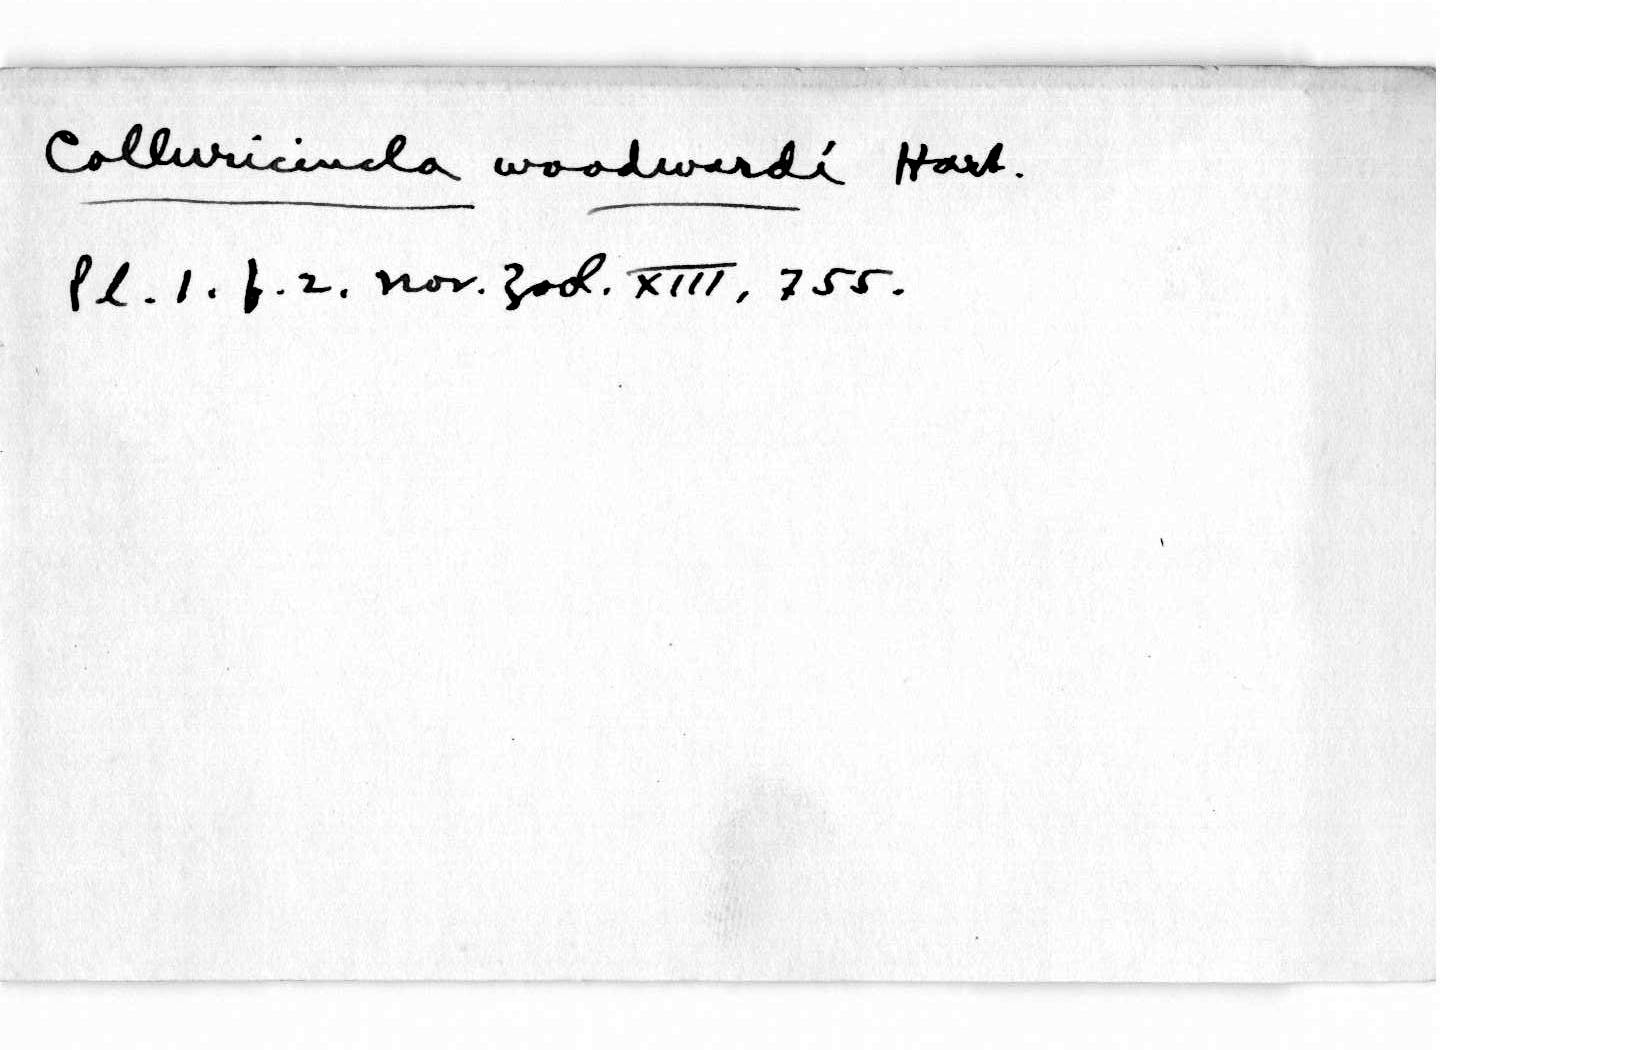 Colluricincla woodwardi Hart.
Pl. 1. f. 2. Nov. Zool. XIII, 755.